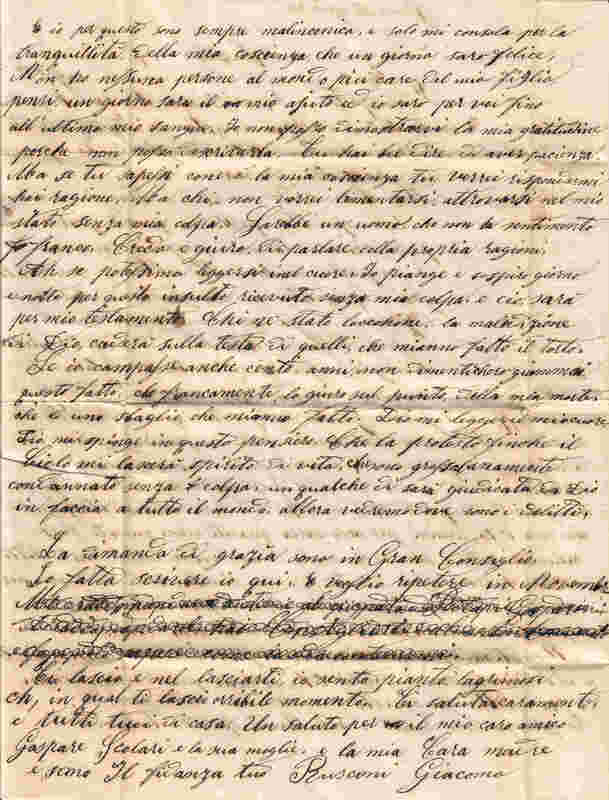 e io per questo sono sempre malinconica, e solo mi consola per la
tranquillità è ella mia coscenza che un giorno saro felice,
Non ho nessuna persone al mondo piu care del mio figlio
pensi un giorno sara il mio ajuto ed io saro per voi fino
all'ultimo mio sangue. Io non posso dimostrarvi la mia gratitudine
perche non posso scriverla. Tu hai bel dire di aver pacienza.
Ma se tu sapessi com'era la mia coscenza tu vorrei rispondermi
hai ragione. Ma chi, non vorrei lamentarsi attrovarsi nel mio
stato senza mia colpa. Sarebbe un uomo che non ha sentimento
franco. Credo e giuro, di parlare colla propria ragioni.
Ah se potessimo leggersi nel cuore. Io piange e sospiro giorno
e notte per questo insulto ricevuto senza mia colpa. e cio sara
per mio testamento. Chi ne stato la maledizione
Dio, cadera sulla testa di quelli, che mianno fatto il torto.
Se io campasse anche cento anni non dimenticherò giammai
questo fatto, che francamente lo giuro sul punto, della mia morte,
che è uno sbaglio, che mianno fatto. Dio mi legge il mio cuore
Dio mi spinge in questo pensiere. Che la protesto finche il
Cielo mi lascerà spirito di vita, che sono
condannato senza colpa, un qualche di sarà giudicata da Dio
in faccia a tutto il mondo. allora vedremo dove sono i delitti,
La dimanda di grazia sono in Gran Consiglio.
Io fatta scrivere io qui. e voglio ripetere in Novembre
Tu lascio e nel lasciarti io sento pianto lagrimosi
Oh, in qual ti lascio orribile momento. Ti saluta caramente,
e tutti tuoi di casa. Un saluto per il mio caro amico
Gaspare Scolari e la sua moglie, e la mia Cara madre
e sono Il fidanza tuo Rusconi Giacomo